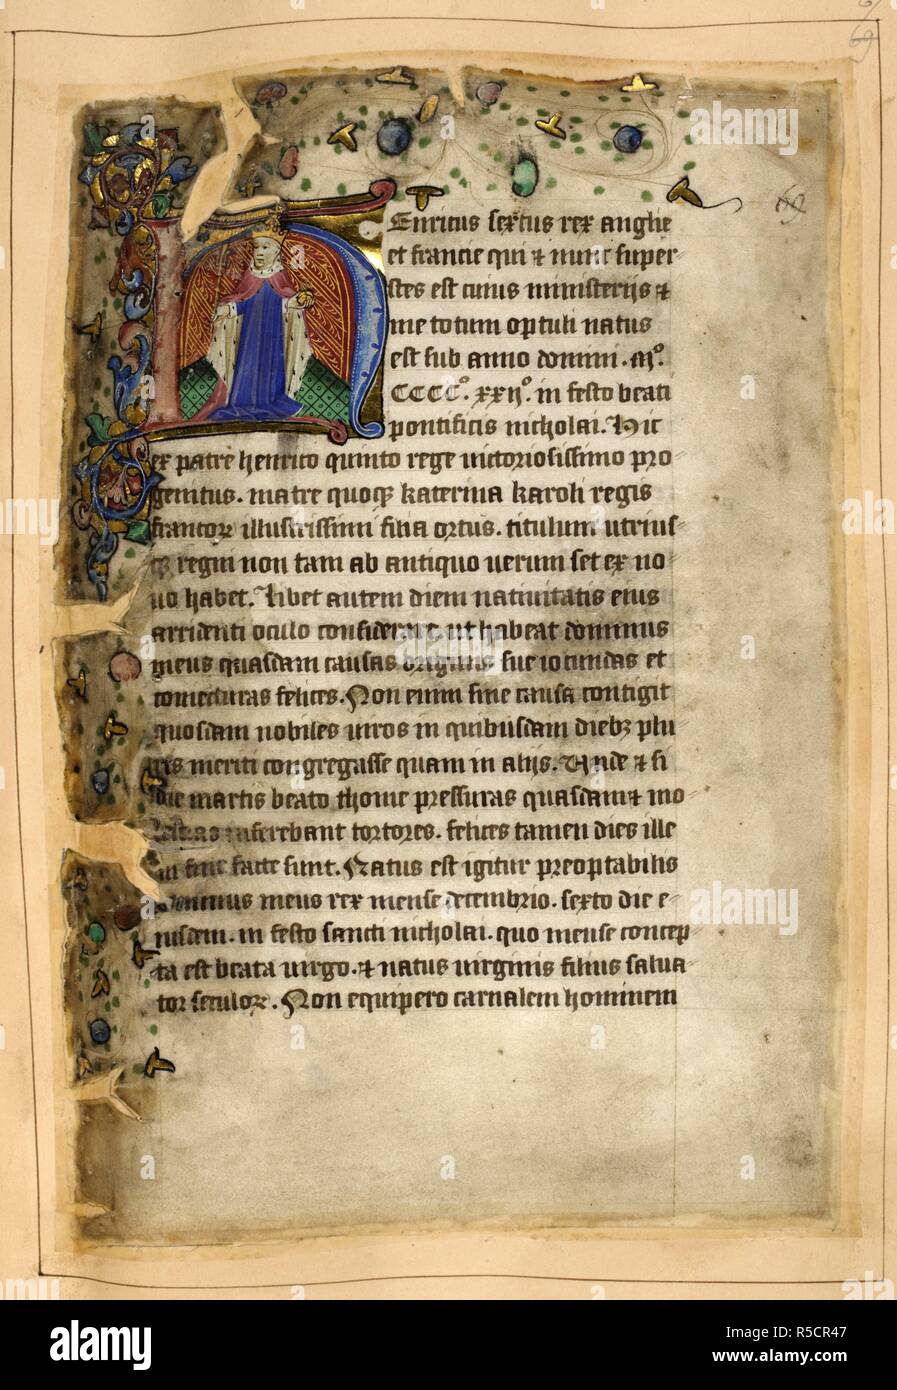 69
69
69
Henricus sextus rex anglie
et francie qui & nunc super-
stes est cuius ministerijs &
me totum optuli natus
est sub anno domini. Mº.
CCCCº. xxijº. in festo beati
pontificis nicholai. Hic
ex patre henrico quinto rege victoriosissimo pro-
genitus. matre quoqꝫ katerina karoli regis
francorꝝ illustrissimi filia ortus. titulum utrius-
qꝫ regni non tam ab antiquo verum set ex no-
uo habet. Libet autem diem natiuitatis eius
arridenti oculo considerare. ut habeat dominus
meus quasdam causas originis sue iocundas et
coniecturas felices. Non enim sine causa contigit
quosdam nobiles viros in quibusdam diebꝫ plu
ris meriti congregasse quam in alijs. Unde & si
die martis beato thome pressuras quasdam & mo
lestias inferebant tortores. felices tamen dies ille
in fine facte sunt. Natus est igitur preoptabilis
dominus meus rex mense decembrio. sexto die e-
iusdem. in festo sancti nicholai. quo mense concep-
ta est beata virgo. & natus virginis filius salua
tor seculorꝝ. Non equipero carnalem hominem
alamy
alamy
Image ID: R5CR47
www.alamy.com